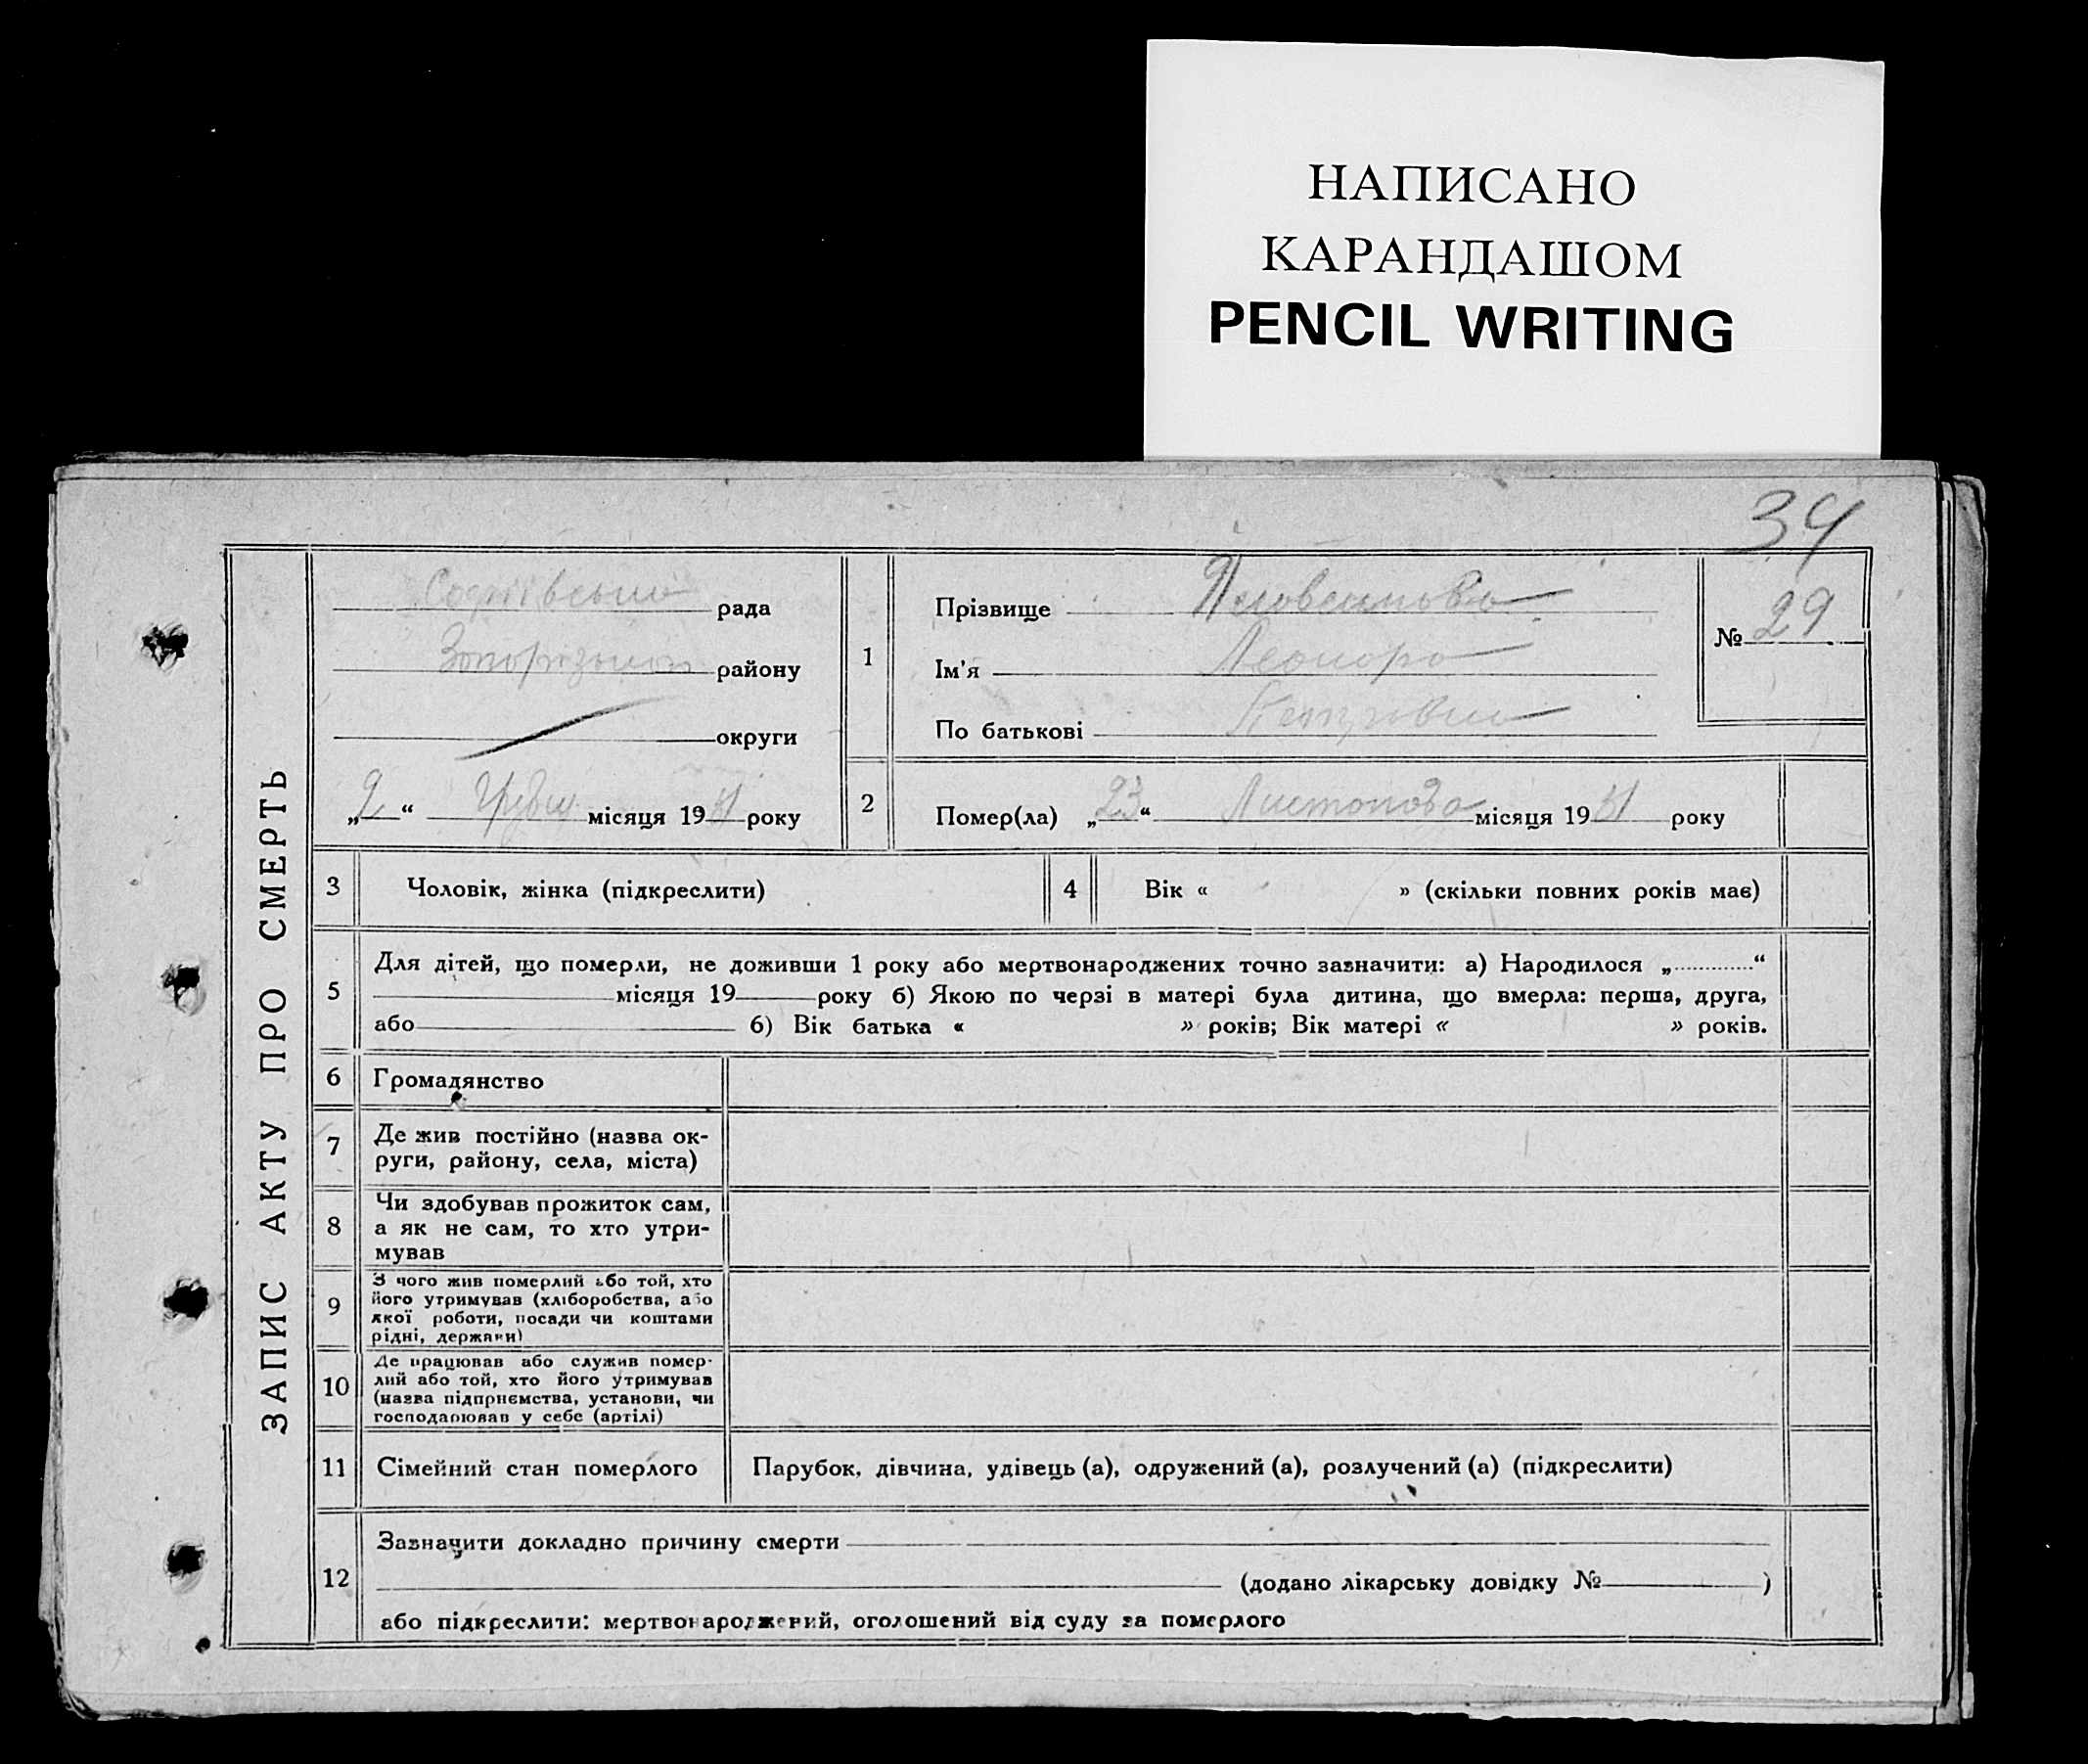 НАПИСАНО
КАРАНДАШОМ
PENCIL WRITING
34
ЗАПИС АКТУ ПРО СМЕРТЬ
рада
району
округи
„2“ місяця 1931 року
1
Прізвище
Ім'я
По батькові
№ 29
2
Помер(ла) „23“ Листопада місяця 1931 року
3 Чоловік, жінка (підкреслити)
4 Вік « » (скільки повних років має)
5
Для дітей, що померли, не доживши 1 року або мертвонароджених точно зазначити: а) Народилося „ “
місяця 19 року б) Якою по черзі в матері була дитина, що вмерла: перша, друга,
або б) Вік батька « » років; Вік матері « » років.
6 Громадянство
7
Де жив постійно (назва ок-
руги, району, села, міста)
8
Чи здобував прожиток сам,
а як не сам, то хто утри-
мував
9
З чого жив померлий або той, хто
його утримував (хліборобства, або
якої роботи, посади чи коштами
рідні, держави)
10
Де працював або служив помер-
лий або той, хто його утримував
(назва підприємства, установи, чи
господарював у себе (артілі)
11 Сімейний стан померлого
Парубок, дівчина, удівець (а), одружений (а), розлучений (а) (підкреслити)
12
Зазначити докладно причину смерти
(додано лікарську довідку № )
або підкреслити: мертвонароджений, оголошений від суду за померлого